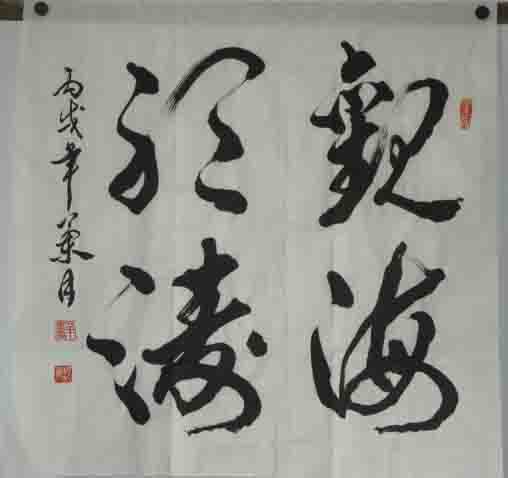 觀海
聽濤
丙戌年菊月